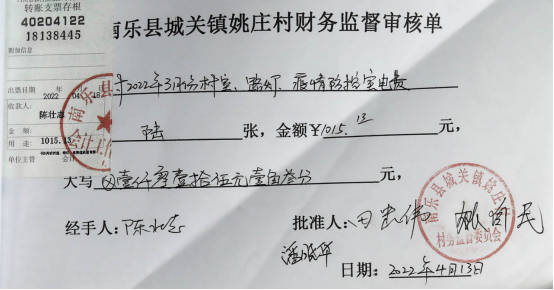 转账支票存根
40204122
18138445
附加信息
出票日期 2022年04月18日
收款人:
陈壮志
金额: 1015.13
用途:
单位主管 会计
南乐县城关镇姚庄村财务监督审核单
付2022年3月份村室、路灯、疫情防控室电费
陆 张,金额¥1015.13 元,
大写 ⊗壹仟零壹拾伍元壹角叁分 元,
经手人:陈壮志 批准人:田忠伟
日期:2022年4月13日
南乐县城关镇姚庄村
村务监督委员会